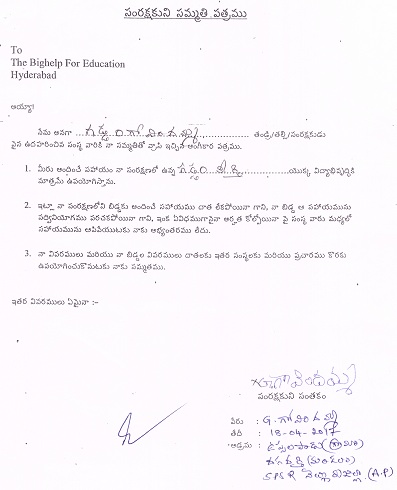 సంరక్షకుని సమ్మతి పత్రము
To
The Bighelp For Education
Hyderabad
అయ్యా!
నేను అనగా ................ తండ్రి/తల్లి/సంరక్షకుడు
పైన ఉదహరించిన సంస్థ వారికి నా సమ్మతితో వ్రాసి ఇచ్చిన అంగీకార పత్రము.
1. మీరు అందించే సహాయం నా సంరక్షణలో ఉన్న ................ యొక్క విద్యాభివృద్ధికి
మాత్రమే ఉపయోగిస్తాను.
2. ఇట్లా నా సంరక్షణలోని బిడ్డకు అందించే సహాయము దాత లేకపోయినా గాని, నా బిడ్డ ఆ సహాయమును
సద్వినియోగము పరచకపోయినా గాని, ఇంక ఏవిధముగానైనా అర్హత కోల్పోయినా పై సంస్థ వారు మధ్యలో
సహాయమును ఆపివేయుటకు నాకు అభ్యంతరము లేదు.
3. నా వివరములు మరియు నా బిడ్డల వివరములు దాతలకు ఇతర సంస్థలకు మరియు ప్రచారము కొరకు
ఉపయోగించుకొనుటకు నాకు సమ్మతము.
ఇతర వివరములు ఏమైనా :-
సంరక్షకుని సంతకం
పేరు : G. గోవిందమ్మ
తేదీ : 18-04-2017
అడ్రసు : ఉప్పలపాడు (గ్రామం)
(మండలం)
SPSR నెల్లూరు జిల్లా (A.P)